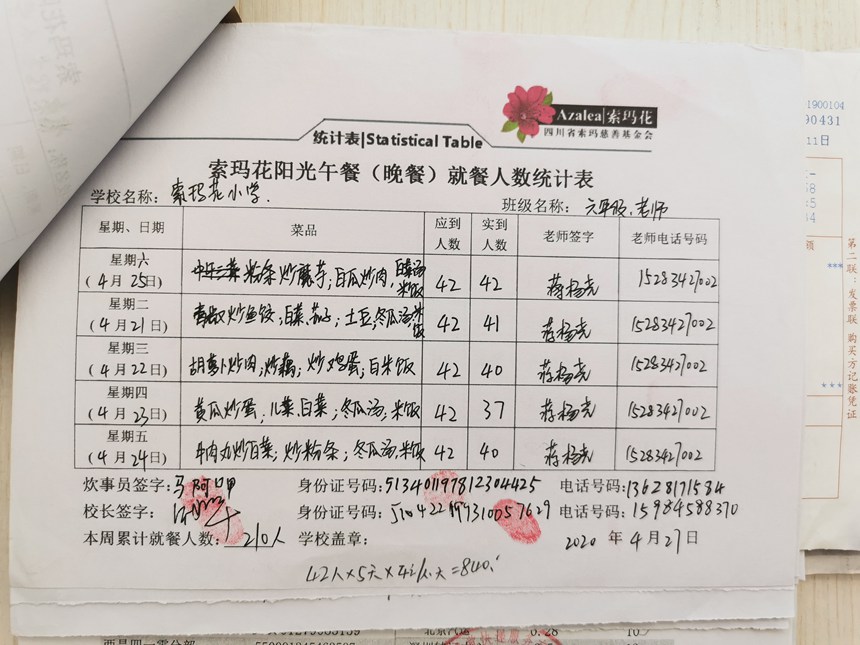 Azalea|索玛花
四川省索玛慈善基金会
统计表|Statistical Table
索玛花阳光午餐（晚餐）就餐人数统计表
学校名称：索玛花小学.
班级名称：六年级、老师
星期、日期 菜品 应到人数 实到人数 老师签字 老师电话号码
星期六（4月25日） 粉条炒蘑芋；白瓜炒肉, 白菜汤 米饭 42 42 蒋杨尧 15283427002
星期二（4月21日） 炒鱼饺；白菜、茄子；土豆;冬瓜汤 米饭 42 41 蒋杨尧 15283427002
星期三（4月22日） 胡萝卜炒肉；炒藕；炒鸡蛋；白米饭 42 40 蒋杨尧 15283427002
星期四（4月23日） 黄瓜炒蛋，儿菜白菜；冬瓜汤,米饭 42 37 蒋杨尧 15283427002
星期五（4月24日） 牛肉丸炒白菜；炒粉条；冬瓜汤,米饭 42 40 蒋杨尧 15283427002
炊事员签字：马阿呷 身份证号码：513401197812304425 电话号码：13628171584
校长签字： 身份证号码： 电话号码：15984588370
本周累计就餐人数：210人 学校盖章： 2020年4月27日
42人×5天×4元/人天=840.
1900104
90431
11日
第二联：发票联 购买方记账凭证